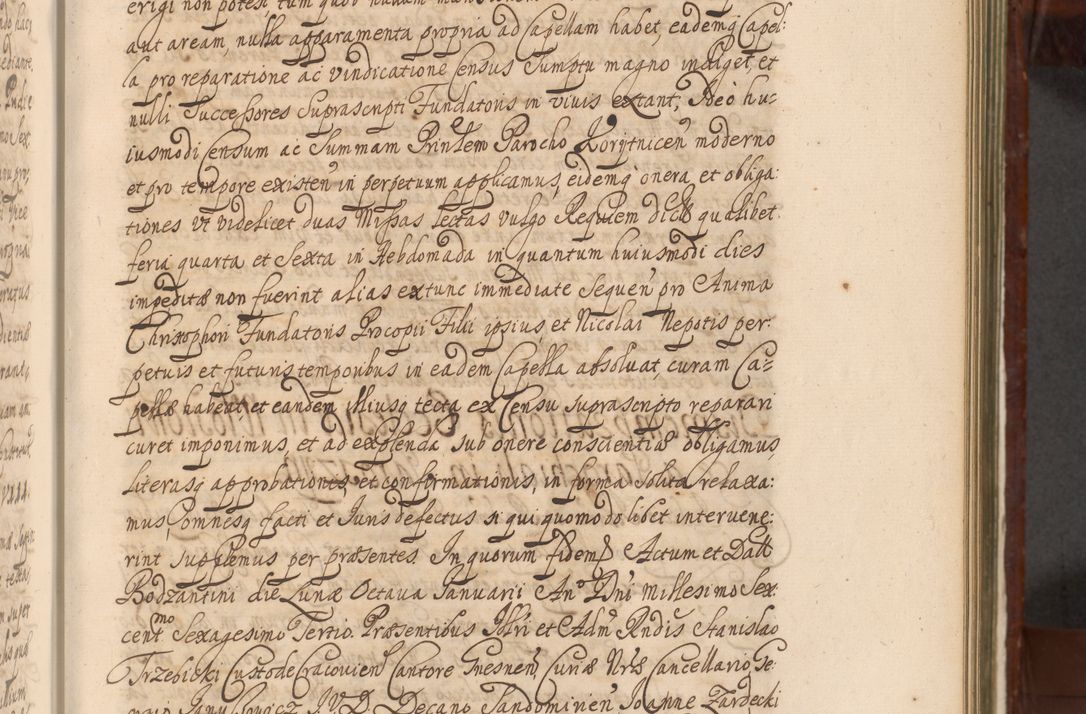 erigi non potest, tum quod nullam
aut aream, nulla apparamenta propria ad Capellam habet, eademq Capel:
la pro reparatione ac vindicatione Census Sumptu magno indaget, et
nulli Successores Suprascripti Fundatoris in vivis extant, Ideo hu-
iusmodi Censum ac Summam Prinlem Parocho Korytnicen moderno
et pro tempore existen in perpetuum applicamus, eidemq onera et obliga:
tiones vt videlicet duas Missas lectas vulgo Requiem dictas qualibet
feria quarta et Sexta in Hebdomada in quantum huiusmodi dies
impeditæ non fuerint alias extunc immediate Sequen pro Anima
Christophori Fundatoris Procopii Filii ipsius, et Nicolai Nepotis per:
petuis et futuris temporibus in eadem Capella absoluat, curam Ca-
pellæ habeat et eandem illiusq tecta ex Censu suprascripto reparari
curet imponimus, et ad explenda sub onere conscientiæ obligamus
Literasq approbationis, et confirmationis, in forma solita relaxa:
mus, omnesq facti et Juris defectus si qui quomodolibet intervene:
rint supplemus per præsentes. In quorum fidem Actum et Datt
Bodzantini die Lunæ Octaua Januarii Anº Dni Millesimo Sex
centmo Sexagesimo Tertio. Præsentibus Illri et Adm Rndis Stanislao
Trzebicki Custode Cracovien Cantore Gnesnen, Curiæ Nræ Cancellario Se
Janu J.V.D. Decano Sandomirien Joanne Zardecki